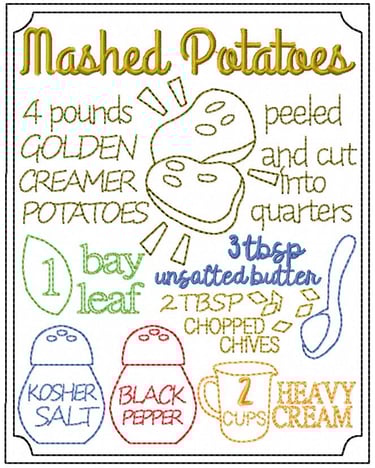 Mashed Potatoes
4 pounds
GOLDEN
CREAMER
POTATOES
peeled
and cut
into
quarters
1 bay
leaf
3 tbsp
unsalted butter
2 TBSP
CHOPPED
CHIVES
KOSHER
SALT
BLACK
PEPPER
2
CUPS
HEAVY
CREAM